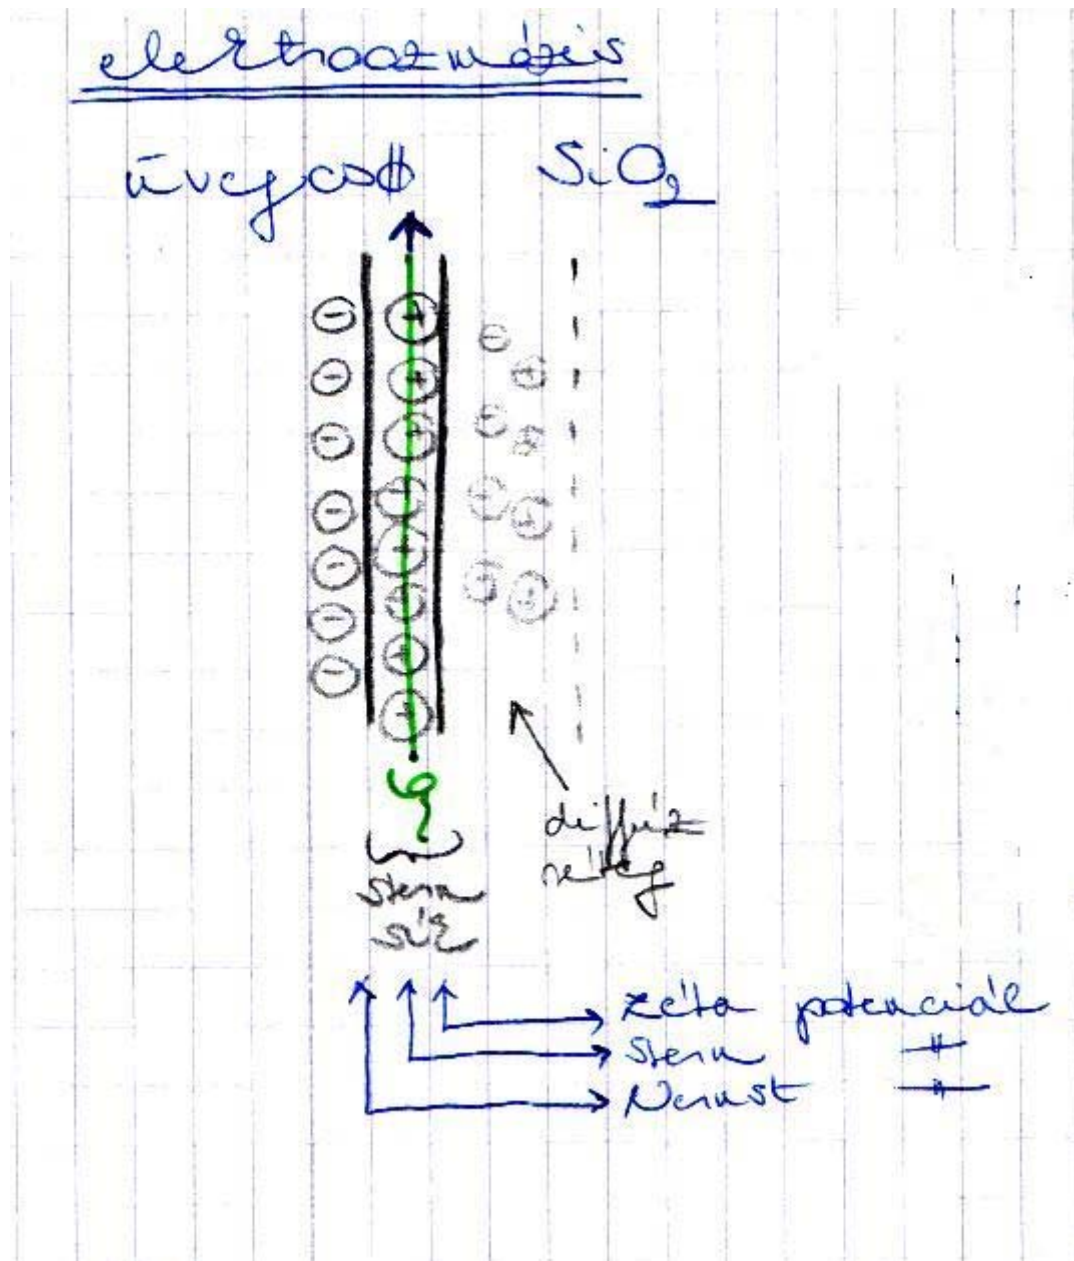 elektroozmózis
üvegcső SiO2
φ
diffúz
réteg
Stern
sík
zéta potenciál
Stern -〃-
Nernst -〃-